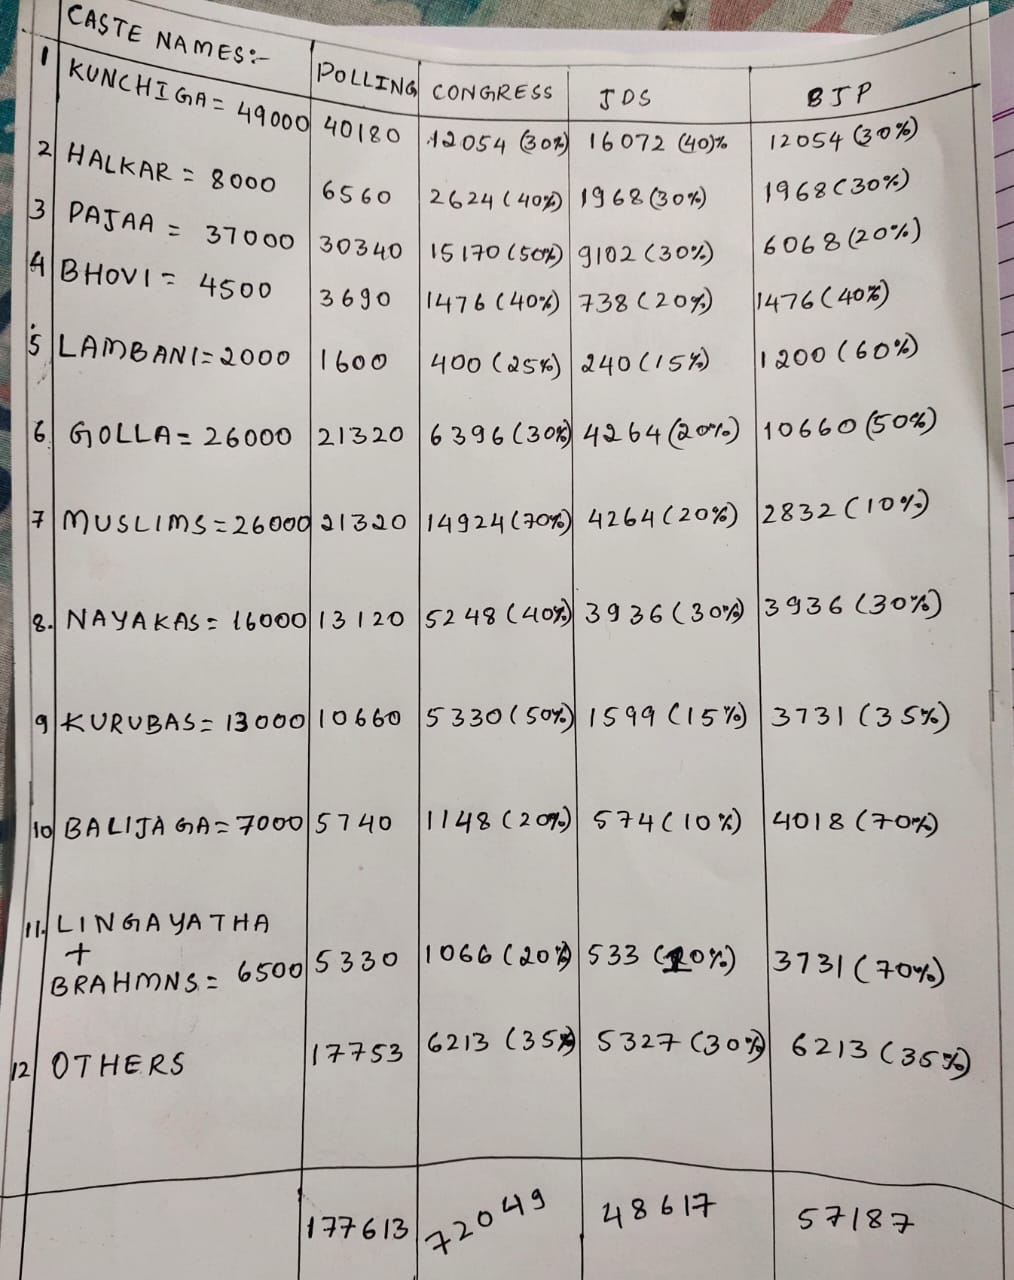 CASTE NAMES:- POLLING CONGRESS JDS BJP
1 KUNCHIGA = 49000 40180 12054 (30%) 16072 (40)% 12054 (30%)
2 HALKAR = 8000 6560 2624 (40%) 1968 (30%) 1968 (30%)
3 PAJAA = 37000 30340 15170 (50%) 9102 (30%) 6068 (20%)
4 BHOVI = 4500 3690 1476 (40%) 738 (20%) 1476 (40%)
5 LAMBANI = 2000 1600 400 (25%) 240 (15%) 1200 (60%)
6 GOLLA = 26000 21320 6396 (30%) 4264 (20%) 10660 (50%)
7 MUSLIMS = 26000 21320 14924 (70%) 4264 (20%) 2832 (10%)
8. NAYAKAS = 16000 13120 5248 (40%) 3936 (30%) 3936 (30%)
9 KURUBAS = 13000 10660 5330 (50%) 1599 (15%) 3731 (35%)
10 BALIJAGA = 7000 5740 1148 (20%) 574 (10%) 4018 (70%)
11. LINGAYATHA
+
BRAHMNS = 6500 5330 1066 (20%) 533 (10%) 3731 (70%)
12 OTHERS 17753 6213 (35%) 5327 (30%) 6213 (35%)
177613 72049 48617 57187